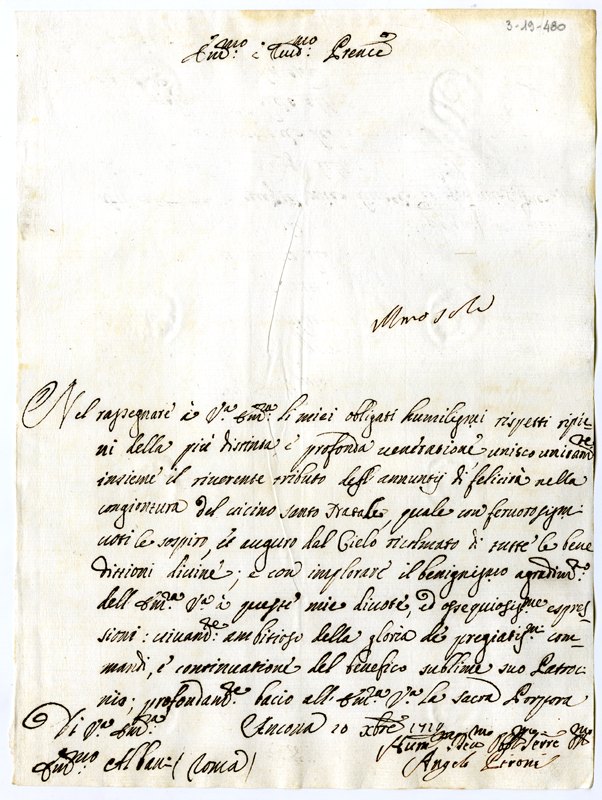 3-19-480
Em̃mo: è Rũdmo: Prence
Nel rassegnare à V.ra Em̃za: li miei obligati humilissmi rispetti ripie-
ni della piú distinta, è profonda veneratione unisco unitamte
insieme il riverente tributo degl' annuntij di felicità nella
congiontura del vicino santo Natale, quale con fervorosissmi
voti le sospiro, è auguro dal Cielo ricolmato di tutte le bene
dittioni divine; e con implorare il benignissmo agradimto:
dell' Em̃za: V.ra à queste mie divote, ed ossequiosissme espres-
sioni: vivamte: ambitioso della gloria de' pregiatissmi com-
mandi, è continuatione del benefico sublime suo Patroci-
nio; profondamte: bacio all' Em̃za: V.ra la sacra Porpora
Di V.ra Em̃za: Ancona 20 Xbre
Em̃mo: Alban: (Roma) Angelo